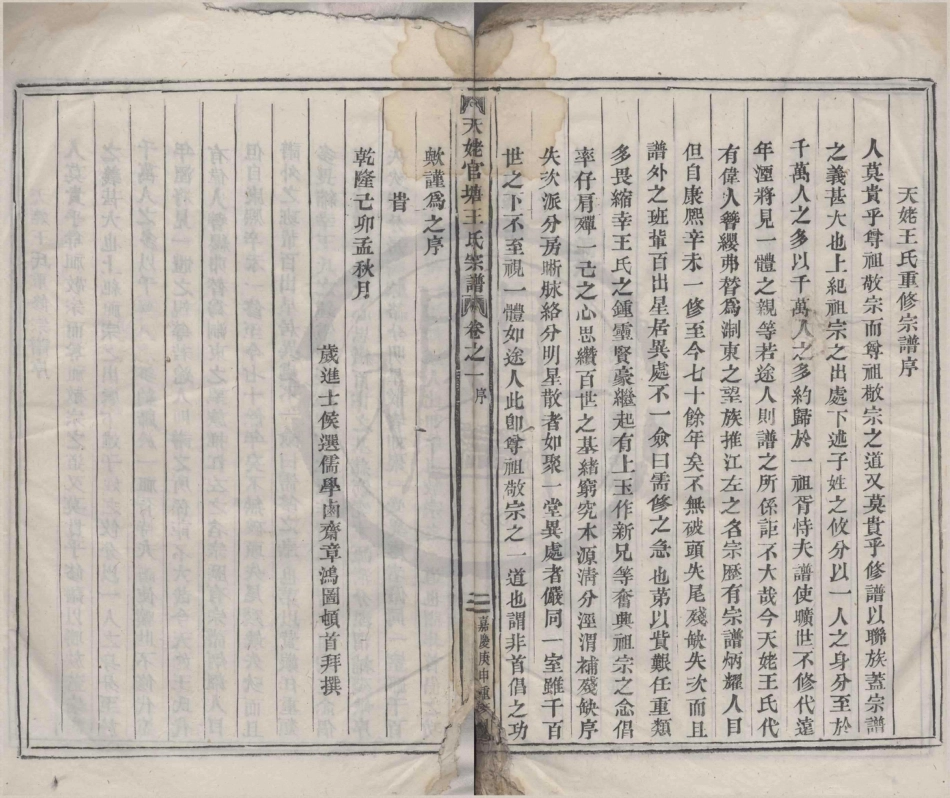 天姥王氏重修宗譜序
人莫貴乎尊祖敬宗而尊祖敬宗之道又莫貴乎修譜以聯族蓋宗譜
之義甚大也上紀祖宗之出處下述子姓之攸分以一人之身分至於
千萬人之多以千萬人之多約歸於一祖胥恃夫譜使曠世不修代遠
年湮將見一體之親等若途人則譜之所係詎不大哉今天姥王氏代
有偉人簪纓弗替為淛東之望族推江左之名宗歷有宗譜炳耀人目
但自康熙辛未一修至今七十餘年矣不無破頭失尾殘缺失次而且
譜外之班輩百出星居異處不一僉曰需修之急也苐以貲艱任重類
多畏縮幸王氏之鍾靈賢豪繼起有上玉作新兄等奮興祖宗之念倡
率仔肩殫一己之心思纘百世之基緒窮究木源清分涇渭補殘缺序
失次派分房晰脉絡分明星散者如聚一堂異處者儼同一室雖千百
世之下不至視一體如途人此卽尊祖敬宗之一道也謂非首倡之功
天姥官塘王氏宗譜 卷之一 序 三 嘉慶庚申重
歟謹為之序
旹
乾隆己卯孟秋月
歲進士候選儒學卤齋章鴻圖頓首拜撰